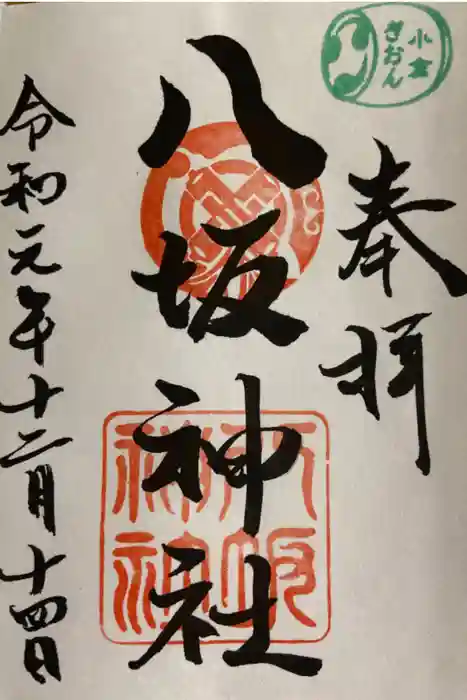 小倉
ぎおん
奉拝
八坂神社
八坂
神社
令和元年十二月十四日